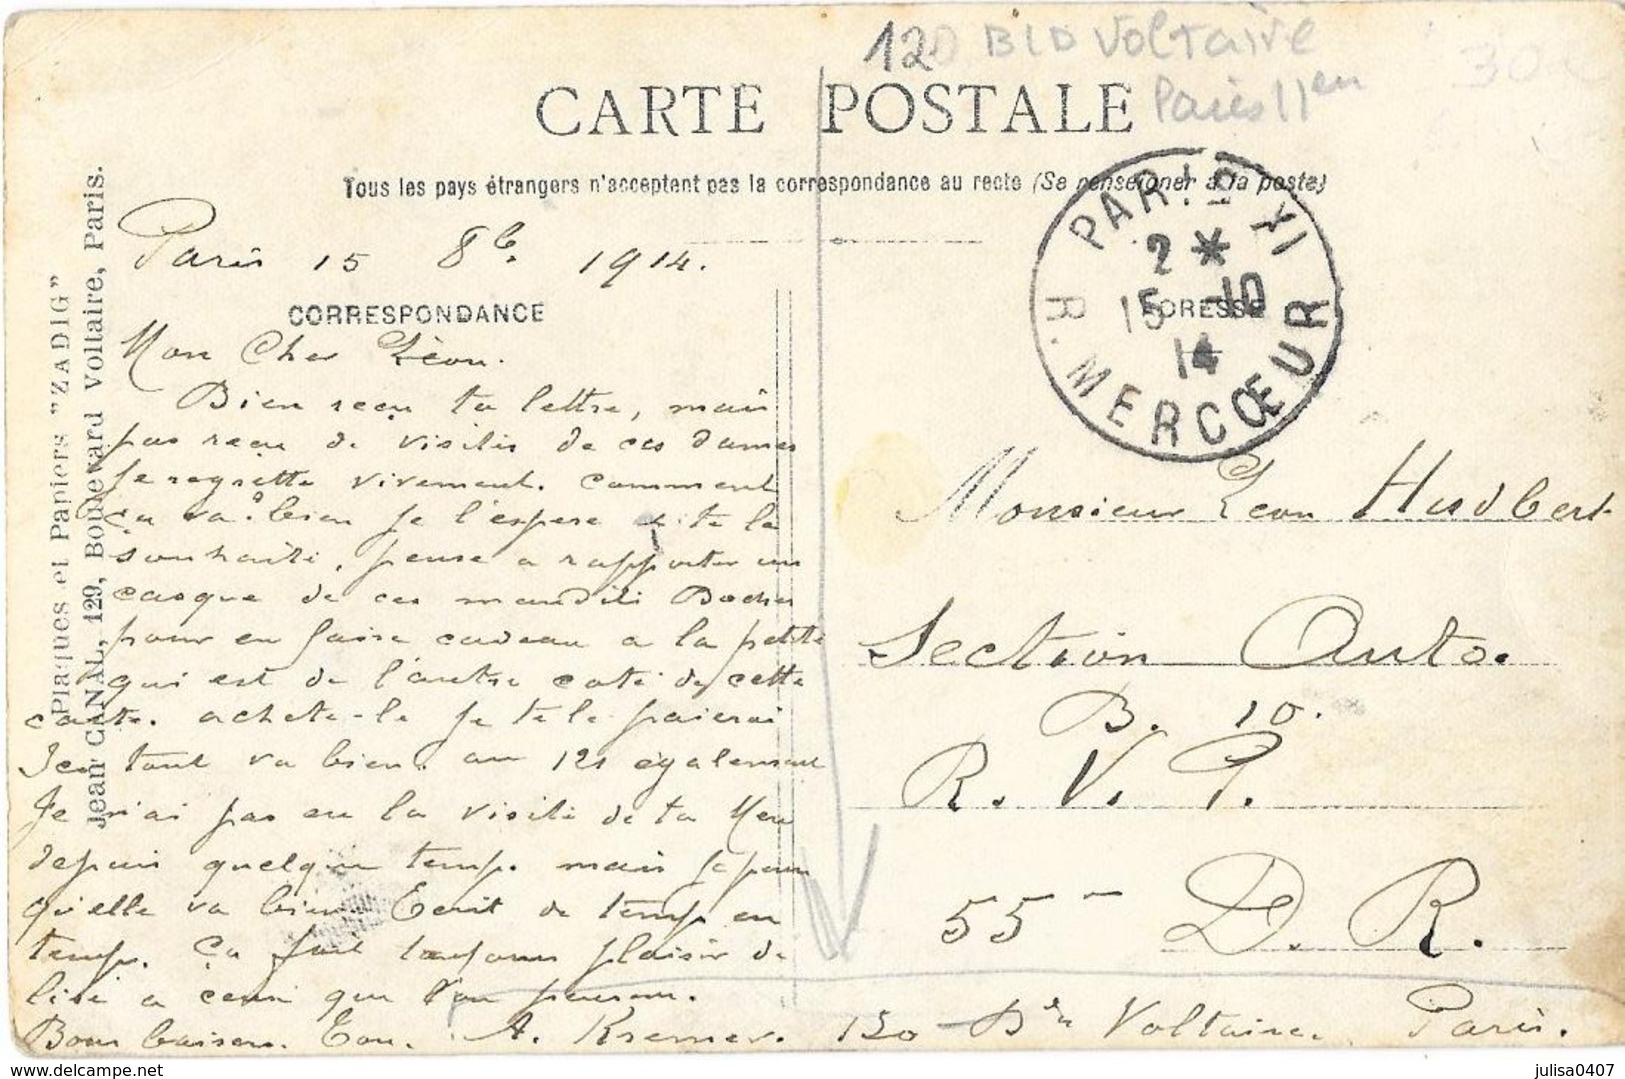 120 BLD VOLTAIRE
Paris 11en
30€
CARTE POSTALE
Tous les pays étrangers n'acceptent pas la correspondance au recto (Se renseigner à la poste)
PARIS XI
2 *
15 10
14
R. MERCŒUR
Plaques et Papiers "ZADIG"
Jean CANAL, 129, Boulevard Voltaire, Paris.
Paris 15 8bre 1914.
CORRESPONDANCE
ADRESSE
Mon Cher Léon.
Bien reçu ta lettre, mais
pas reçu de visites de ces dames
je regrette vivement. Comment
ça va? bien je l'espere et te le
souhaite, pense a rapporter un
casque de ces maudits Boches
pour en faire cadeau a la petite
qui est de l'autre coté de cette
carte. achete-le je te le paierai
Ici tout va bien. au 121 également
Je n'ai pas eu la visite de ta Mere
depuis quelque temps. mais je pense
qu'elle va bien. Ecrit de temps en
temps. Ça fait toujours plaisir de
lire a ceux que l'on
Bons baisers. Ton. A. Kremer. 120 Bd Voltaire. Paris.
Monsieur Leon Hudbert
Section Auto.
B. 10.
R. V. F.
55 - D. R.
julisa0407